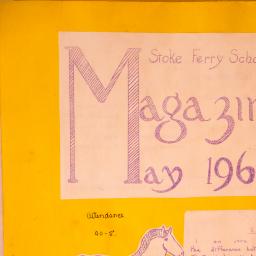 Stoke Ferry Scho
Magazin
May 196
Attendance
90.5
I am
the difference bet